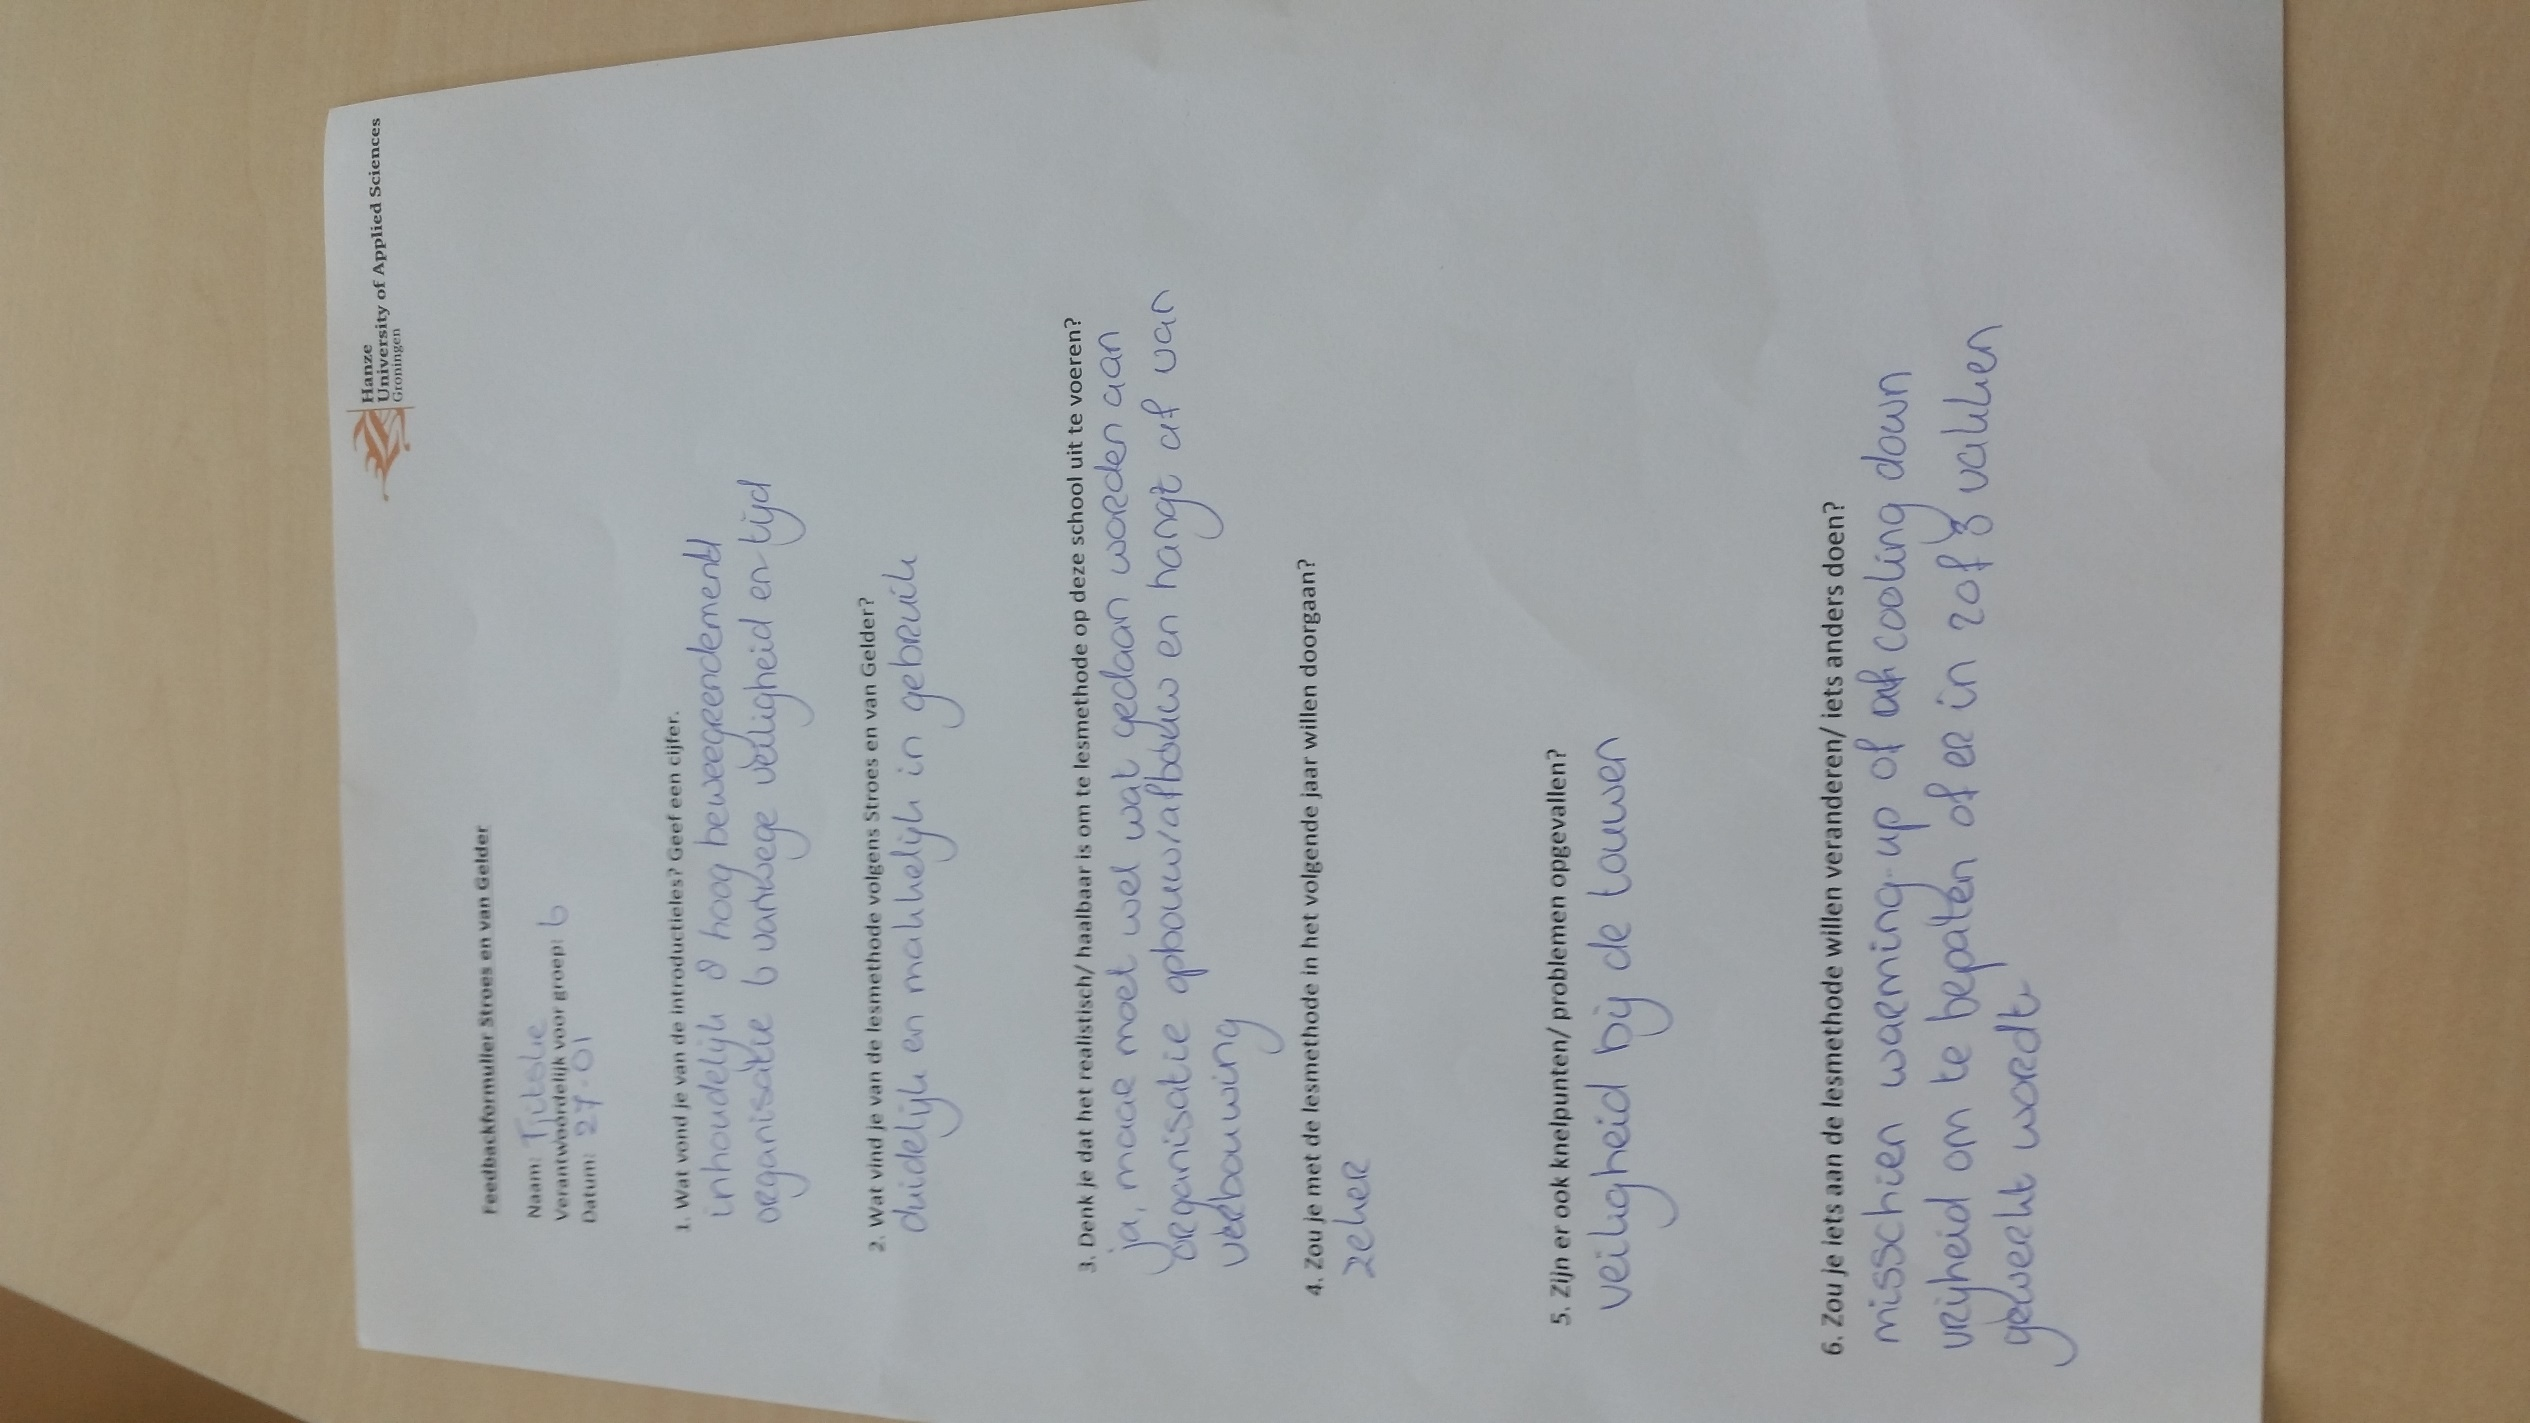 Hanze
University of Applied Sciences
Groningen
Feedbackformulier Stroes en van Gelder
Naam: Titske
Verantwoordelijk voor groep: 6
Datum: 27-01
1. Wat vond je van de introductieles? Geef een cijfer.
inhoudelijk 8 hoog beweegrendement
organisatie 6 vanwege veiligheid en tijd
2. Wat vind je van de lesmethode volgens Stroes en van Gelder?
duidelijk en makkelijk in gebruik
3. Denk je dat het realistisch/ haalbaar is om te lesmethode op deze school uit te voeren?
ja, maar moet wel wat gedaan worden aan
organisatie opbouw/afbouw en hangt af van
verbouwing
4. Zou je met de lesmethode in het volgende jaar willen doorgaan?
zeker
5. Zijn er ook knelpunten/ problemen opgevallen?
veiligheid bij de touwen
6. Zou je iets aan de lesmethode willen veranderen/ iets anders doen?
misschien warming-up of cooling down
vrijheid om te bepalen of er in 2 of 3 vakken
gewerkt wordt